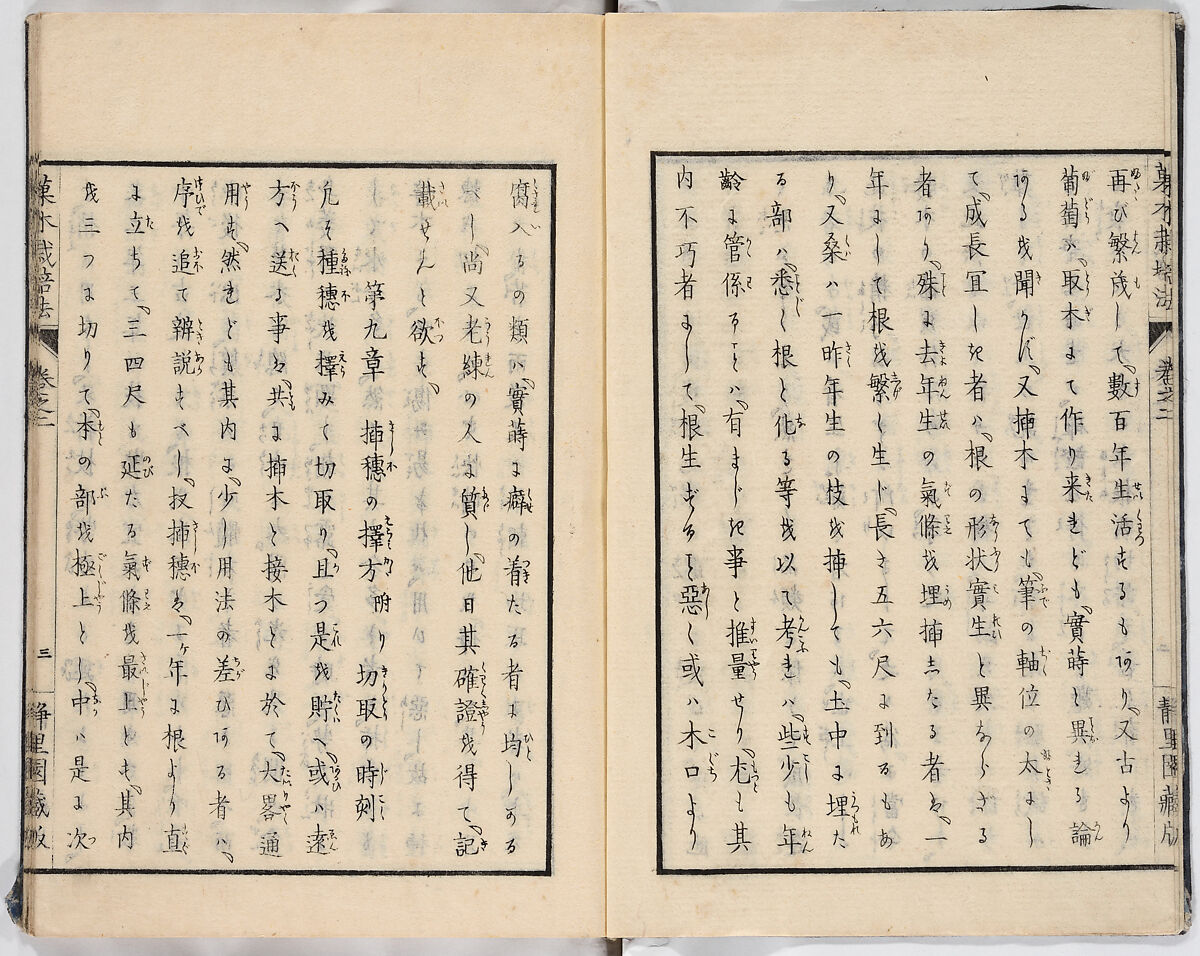 菓木栽培法 巻之二 二 靜里園藏版
再び繁茂して、數百年生活するもあり、又古より
葡萄ハ、取木にて作り来れども、實蒔と異れる論
あるを聞かず、又揷木にても、筆の軸位の太にし
て、成長宜しき者ハ、根の形状實生と異ならざる
者あり、殊に去年生の氣條を埋揷したる者は、一
年にして根を繁く生じ、長き五六尺に到るもあ
り、又桑ハ一昨年生の枝を揷しても、土中に埋た
る部ハ、悉く根と化る等を以て考れハ、些少も年
齡に管係ることハ、有まじき事と推量せり、尤も其
内不巧者にして、根生ずること惡く或ハ木口より
腐入るの類ハ、實蒔に癖の着たる者に均しかる
し、尚又老練の人に質し、他日其確證を得て、記
載せんと欲す、
第九章 揷穗の擇方 附り切取の時刻
凡そ種穗を擇みて切取り、且つ是を貯へ、或ハ遠
方へ送る事は、共に揷木と接木とに於て、大畧通
用す、然れども其内に、少し用法の差ひある者ハ、
序を追て辨説すべし、扨揷穗は、一ヶ年に根より直
に立ちて、三四尺も延たる氣條を最上とす、其内
を三つに切りて、本の部を極上とし、中ハ是に次
菓木栽培法 巻之二 三 靜里園藏版